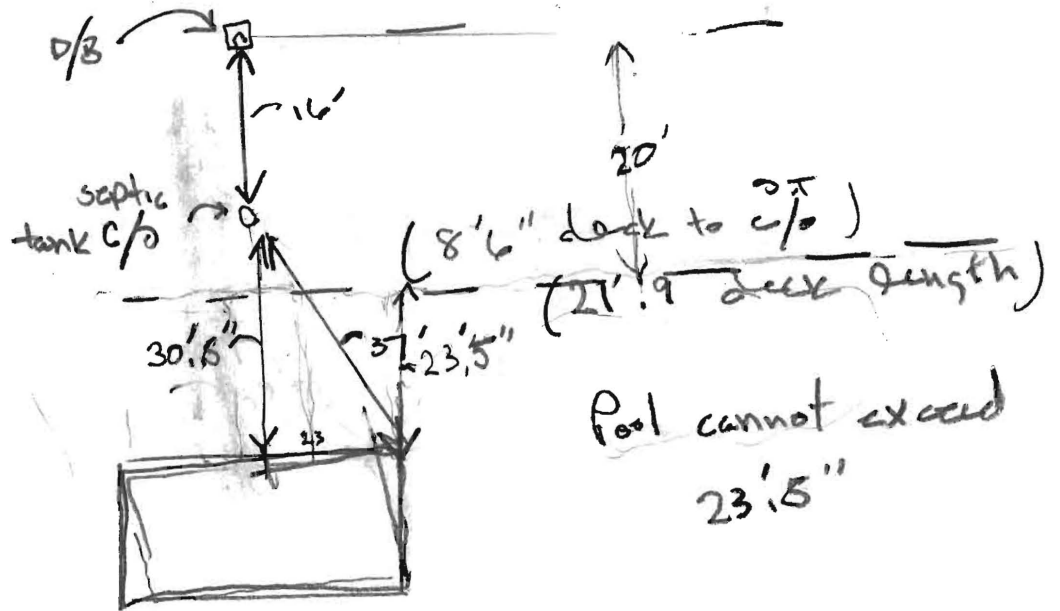 D/B
16'
20'
septic
tank C/O
(8'6" deck to C/O)
deck length)
30'.6"
3
23'.5"
23
Pool cannot exceed
23'.5"